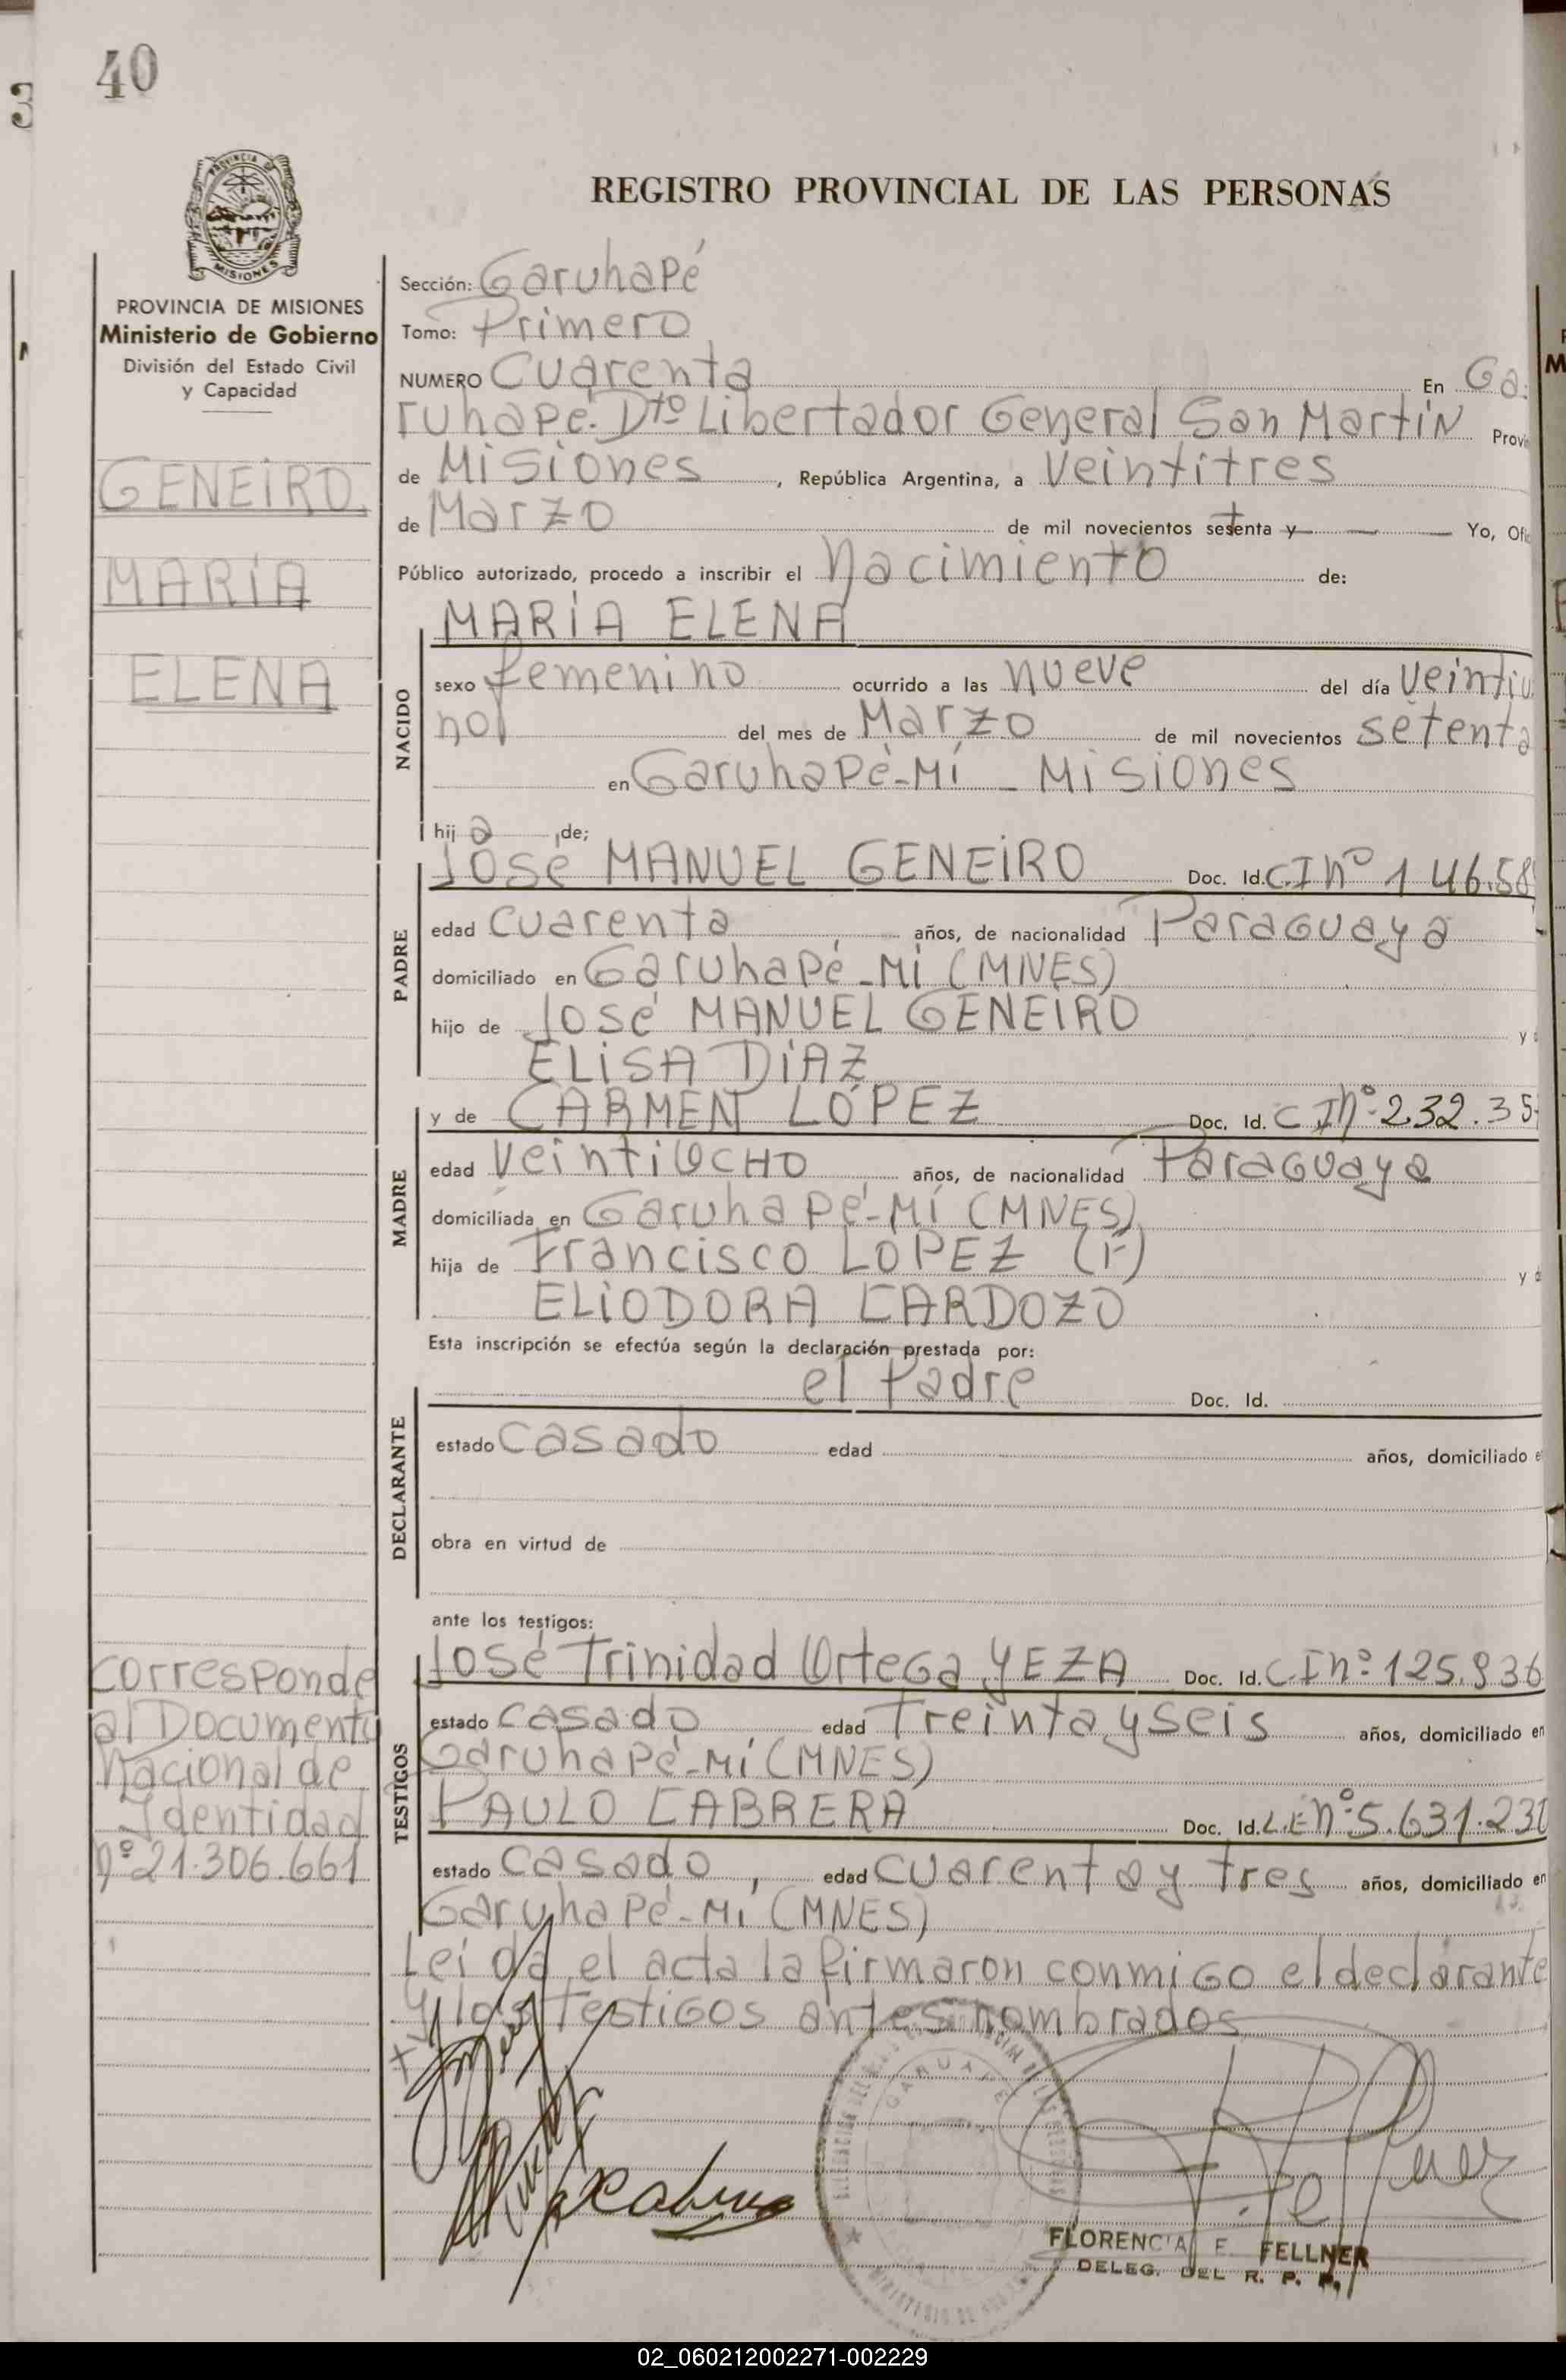 40
3
PROVINCIA DE
MISIONES
REGISTRO PROVINCIAL DE LAS PERSONAS
PROVINCIA DE MISIONES
Ministerio de Gobierno
División del Estado Civil
y Capacidad
GENEIRO
MARÍA
ELENA
Sección: Garuhapé
Tomo: Primero
NUMERO Cuarenta En Ga-
ruhapé. Dto Libertador General San Martín Provin
de Misiones, República Argentina, a Veintitres
de Marzo de mil novecientos setenta y Yo, Ofi
Público autorizado, procedo a inscribir el nacimiento de:
NACIDO
MARÍA ELENA
sexo femenino ocurrido a las nueve del día veintiu
no del mes de Marzo de mil novecientos setenta
en Garuhapé-Mí - Misiones
hij a de;
PADRE
José MANUEL GENEIRO Doc. Id. C.I nº 146.58
edad cuarenta años, de nacionalidad Paraguaya
domiciliado en Garuhapé-Mí (MNES)
hijo de José MANUEL GENEIRO y
ELISA DÍAZ
MADRE
y de CARMEN LÓPEZ Doc. Id. C Inº 232.35
edad Veintiocho años, de nacionalidad Paraguaya
domiciliada en Garuhapé-Mí (MNES)
hija de Francisco LÓPEZ (F) y d
ELIODORA CARDOZO
Esta inscripción se efectúa según la declaración prestada por:
DECLARANTE
el Padre Doc. Id.
estado casado edad años, domiciliado e
obra en virtud de
ante los testigos:
TESTIGOS
José Trinidad Ortega YEZA Doc. Id. C I nº 125.936
estado casado edad Treinta y seis años, domiciliado en
Garuhapé-Mí (MNES)
PAULO CABRERA Doc. Id. L.E nº 5.631.230
estado casado, edad cuarenta y tres años, domiciliado en
Garuhapé-Mí (MNES)
Leída el acta la firmaron conmigo el declarante
y los testigos antes nombrados
corresponde
al Documento
nacional de
Identidad
nº 21.306.661
FLORENCIA E. FELLNER
DELEG. DEL R. P. P.
02_060212002271-002229